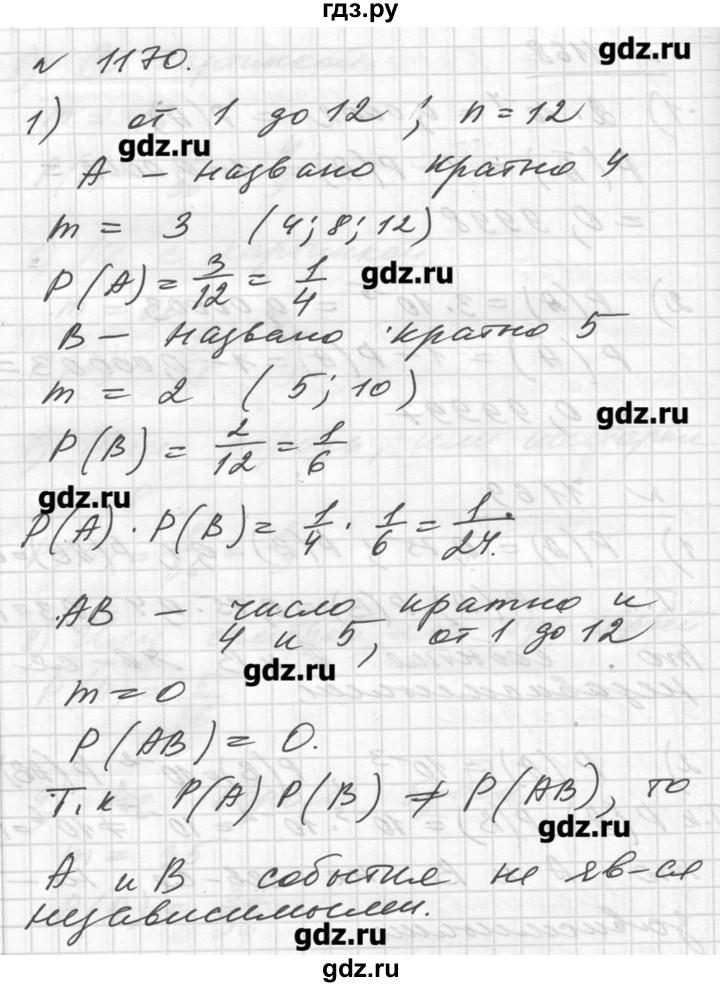 гдз.ру
№ 1170.
gdz.ru
1) от 1 до 12; n = 12
gdz.ru
A — названо кратно 4
m = 3 (4; 8; 12)
P(A) = 3/12 = 1/4
gdz.ru
B — названо кратно 5
m = 2 (5; 10)
gdz.ru
P(B) = 2/12 = 1/6
gdz.ru
P(A) · P(B) = 1/4 · 1/6 = 1/24.
AB — число кратно и
4 и 5, от 1 до 12
gdz.ru
m = 0
P(AB) = 0.
Т.к P(A) P(B) ≠ P(AB), то
gdz.ru
A и B события не яв-ся
независимыми.
gdz.ru
гдз.ру